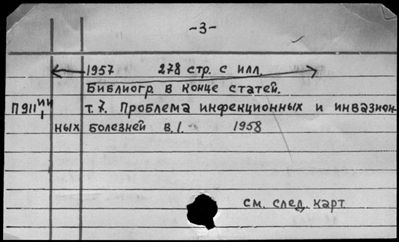 -3-
1957 278 стр. с илл.
Библиогр. в конце статей.
П911 т.7. Проблема инфекционных и инвазион-
ных болезней в.1. 1958
см. след. карт